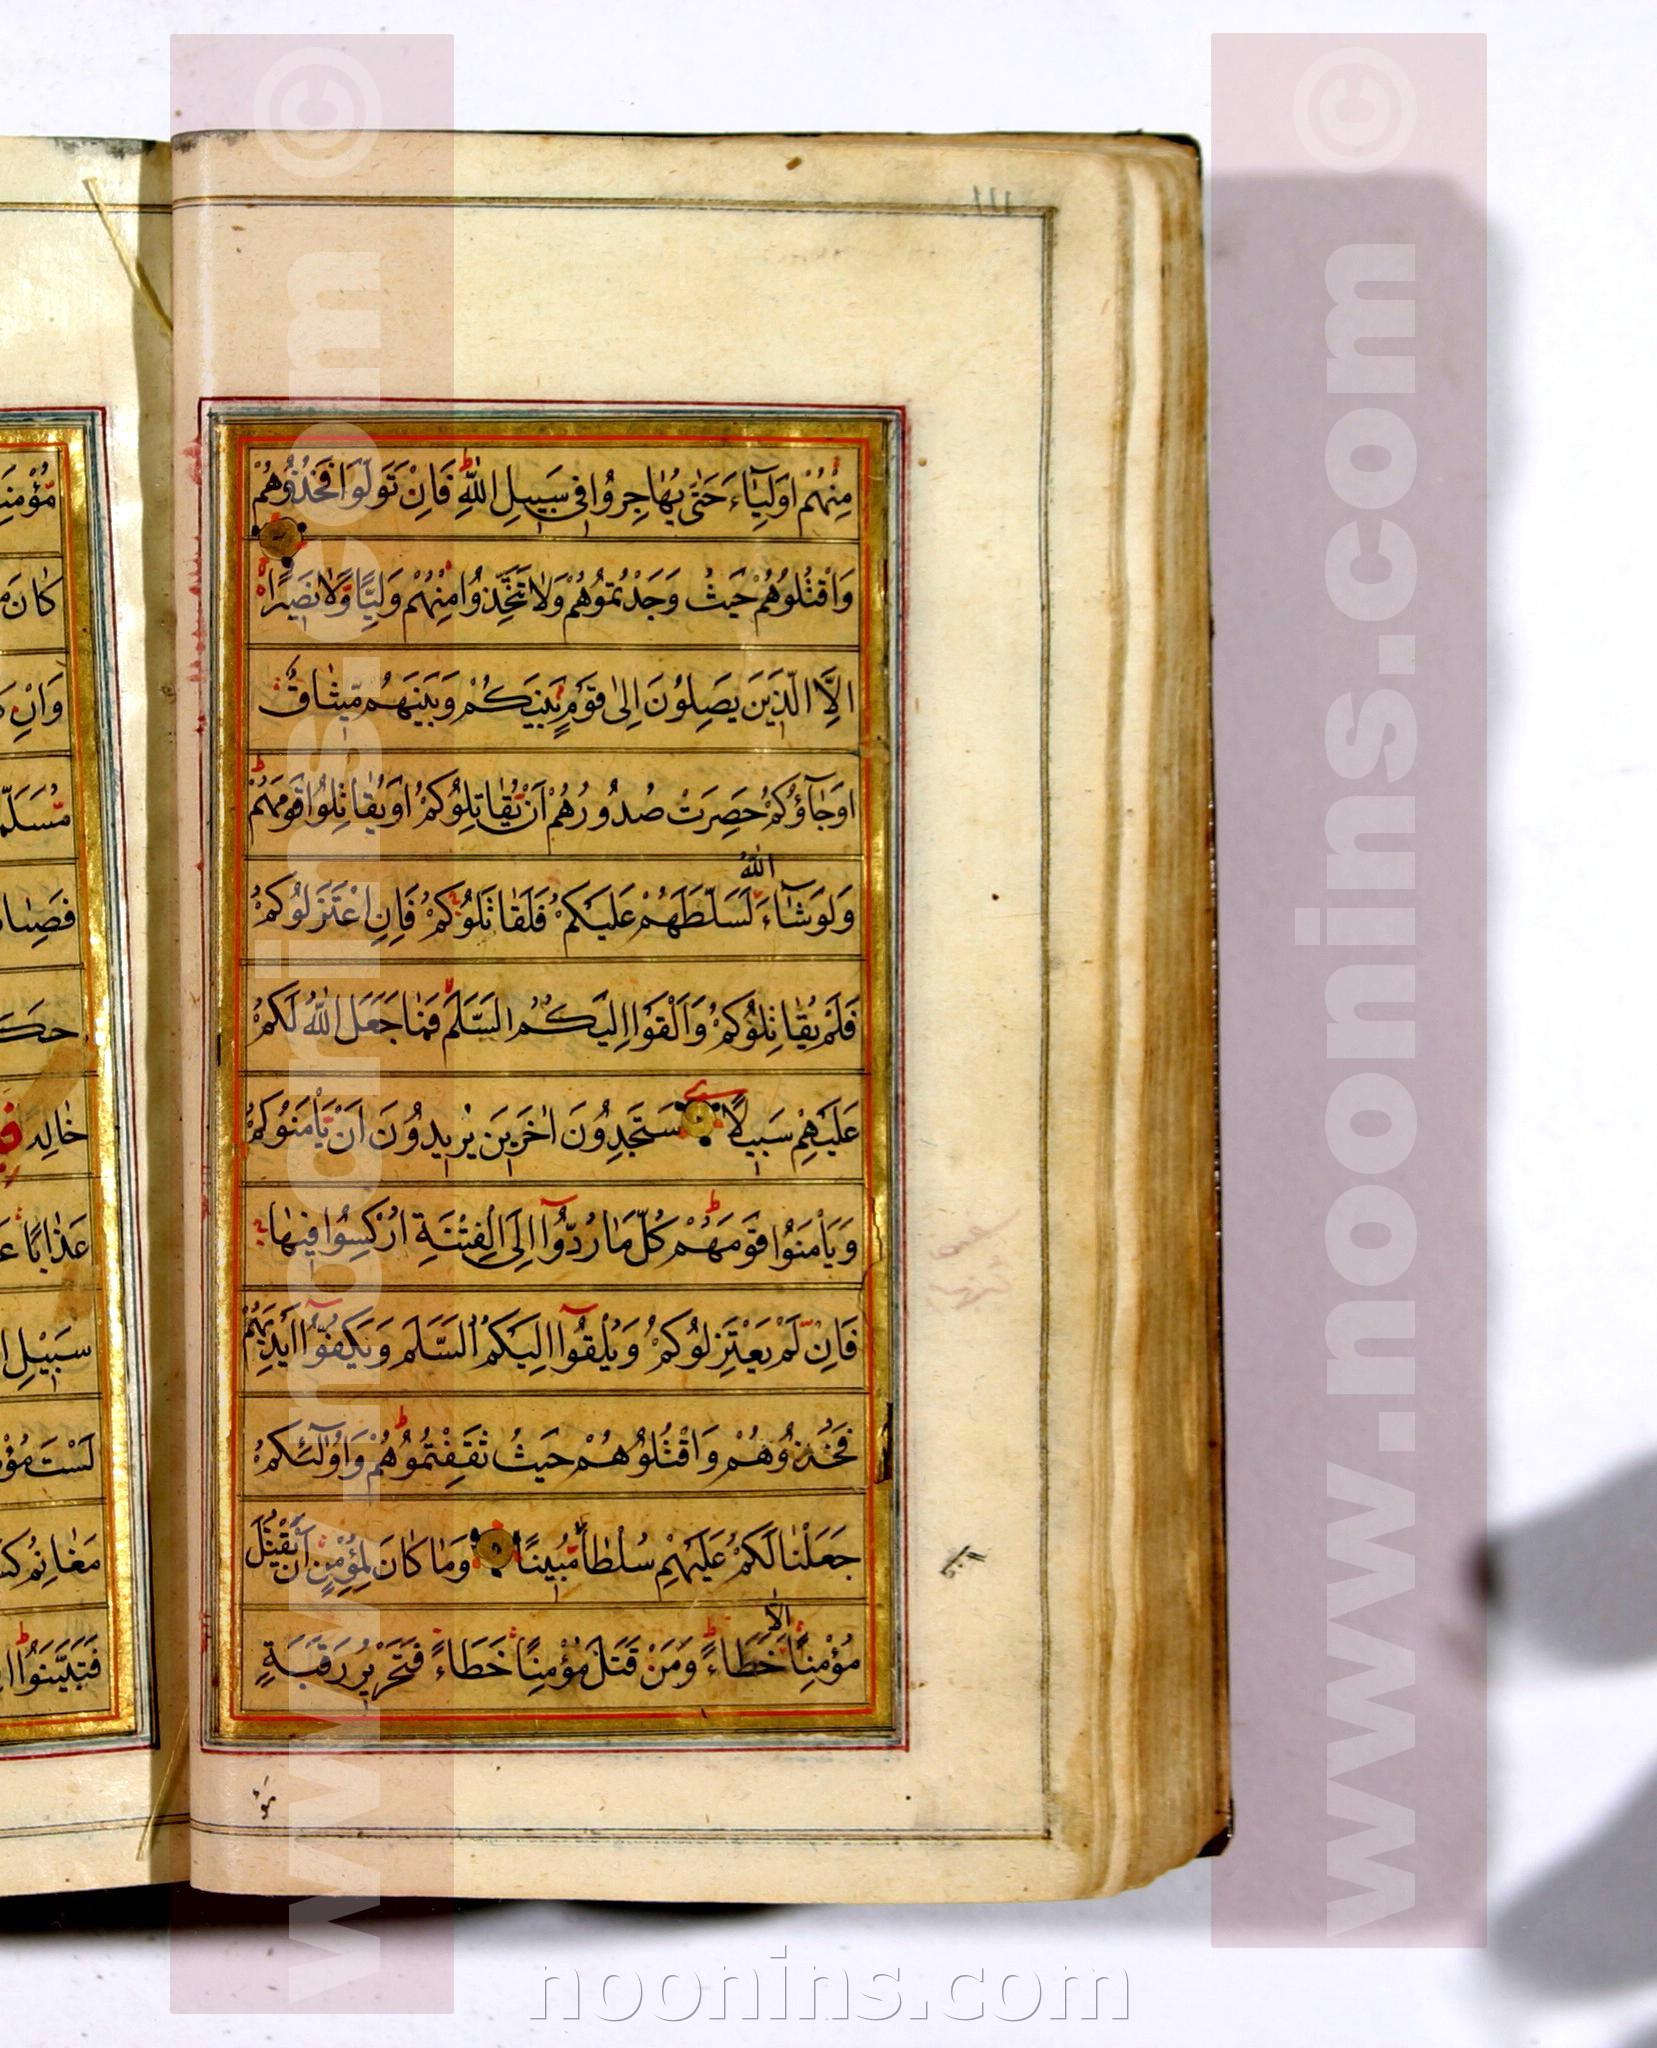 مِنْهُمْ اَوْلِيَآءَ حَتّٰى يُهٰاجِرُوا فى سَبيلِ اللّٰهِ فَاِنْ تَوَلَّوْا فَخُذُوهُمْ
وَاقْتُلُوهُمْ حَيْثُ وَجَدْتُمُوهُمْ وَلٰا تَتَّخِذُوا مِنْهُمْ وَلِيًّا وَلٰا نَصيرًا
اِلَّا الَّذينَ يَصِلُونَ اِلىٰ قَوْمٍ بَيْنَكُمْ وَبَيْنَهُمْ ميثٰاقٌ
اَوْ جٰآؤُكُمْ حَصِرَتْ صُدُورُهُمْ اَنْ يُقٰاتِلُوكُمْ اَوْ يُقٰاتِلُوا قَوْمَهُمْ
وَلَوْ شٰآءَ اللّٰهُ لَسَلَّطَهُمْ عَلَيْكُمْ فَلَقٰاتَلُوكُمْ فَاِنِ اعْتَزَلُوكُمْ
فَلَمْ يُقٰاتِلُوكُمْ وَاَلْقَوْا اِلَيْكُمُ السَّلَمَ فَمٰا جَعَلَ اللّٰهُ لَكُمْ
عَلَيْهِمْ سَبيلًا سَتَجِدُونَ اٰخَرينَ يُريدُونَ اَنْ يَأْمَنُوكُمْ
وَيَأْمَنُوا قَوْمَهُمْ كُلَّ مٰا رُدُّوآ اِلَى الْفِتْنَةِ اُرْكِسُوا فيهٰا
فَاِنْ لَمْ يَعْتَزِلُوكُمْ وَيُلْقُوآ اِلَيْكُمُ السَّلَمَ وَيَكُفُّوآ اَيْدِيَهُمْ
فَخُذُوهُمْ وَاقْتُلُوهُمْ حَيْثُ ثَقِفْتُمُوهُمْ وَاُولٰٓئِكُمْ
جَعَلْنٰا لَكُمْ عَلَيْهِمْ سُلْطٰانًا مُبينًا وَمٰا كٰانَ لِمُؤْمِنٍ اَنْ يَقْتُلَ
مُؤْمِنًا اِلّٰا خَطَاءً وَمَنْ قَتَلَ مُؤْمِنًا خَطَاءً فَتَحْريرُ رَقَبَةٍ
مُؤْ
www.noorins.com ©
www.noonins.com ©
noonins.com